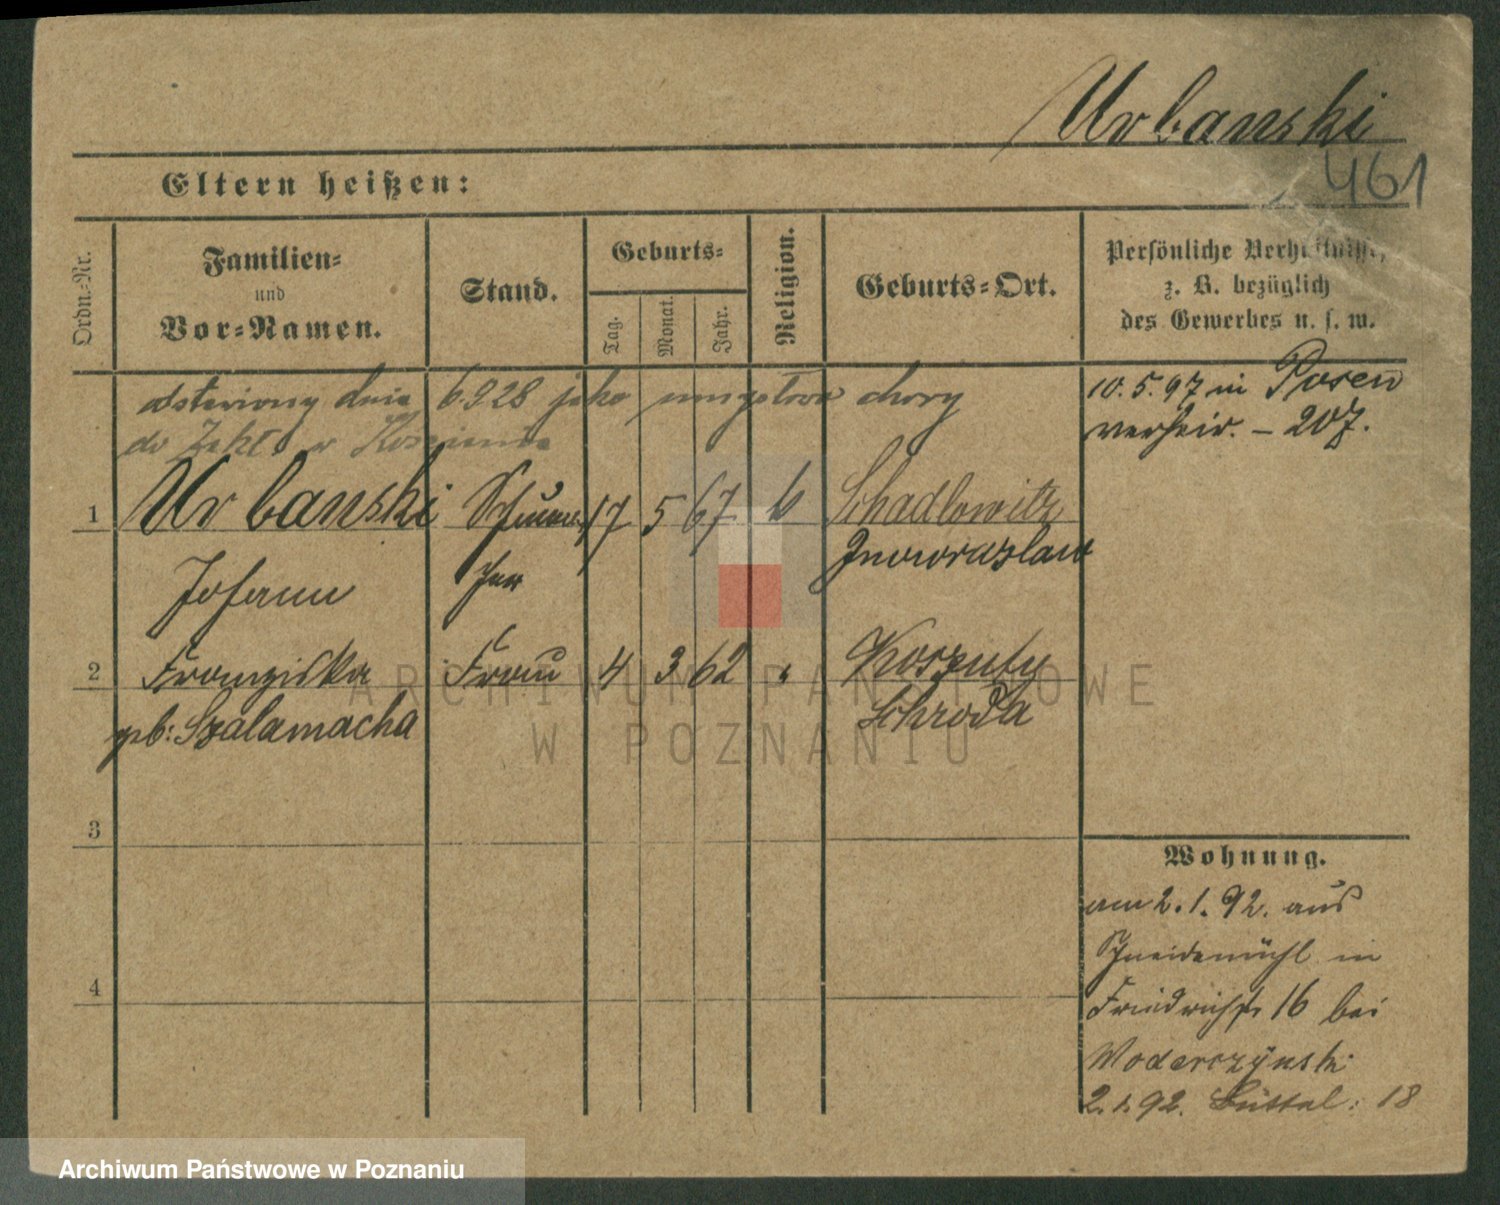 Urbanski
461
Eltern heißen:
Ordn.-Nr.
Familien-
und
Vor-Namen.
Stand.
Geburts-
Tag.
Monat.
Jahr.
Religion.
Geburts-Ort.
Persönliche Verhältnisse,
z. B. bezüglich
des Gewerbes u. s. w.
dnia 6.9.28 jako umysłowo chory
do Zakł. w
10.5.97 in Posen
verheir. – 207.
1 Urbanski Schuma- 17 5 67 k Schadlowitz
Johann cher Inowrazlaw
2 Franziska Frau 4 3 62 " Koszuty
geb: Szalamacha Schroda
3
4
Wohnung.
am 2.1.92. aus
Schneidemühl in
Friedrichstr 16 bei
Woderczynski
2.1.92. 18
ARCHIWUM PAŃSTWOWE
W POZNANIU
Archiwum Państwowe w Poznaniu